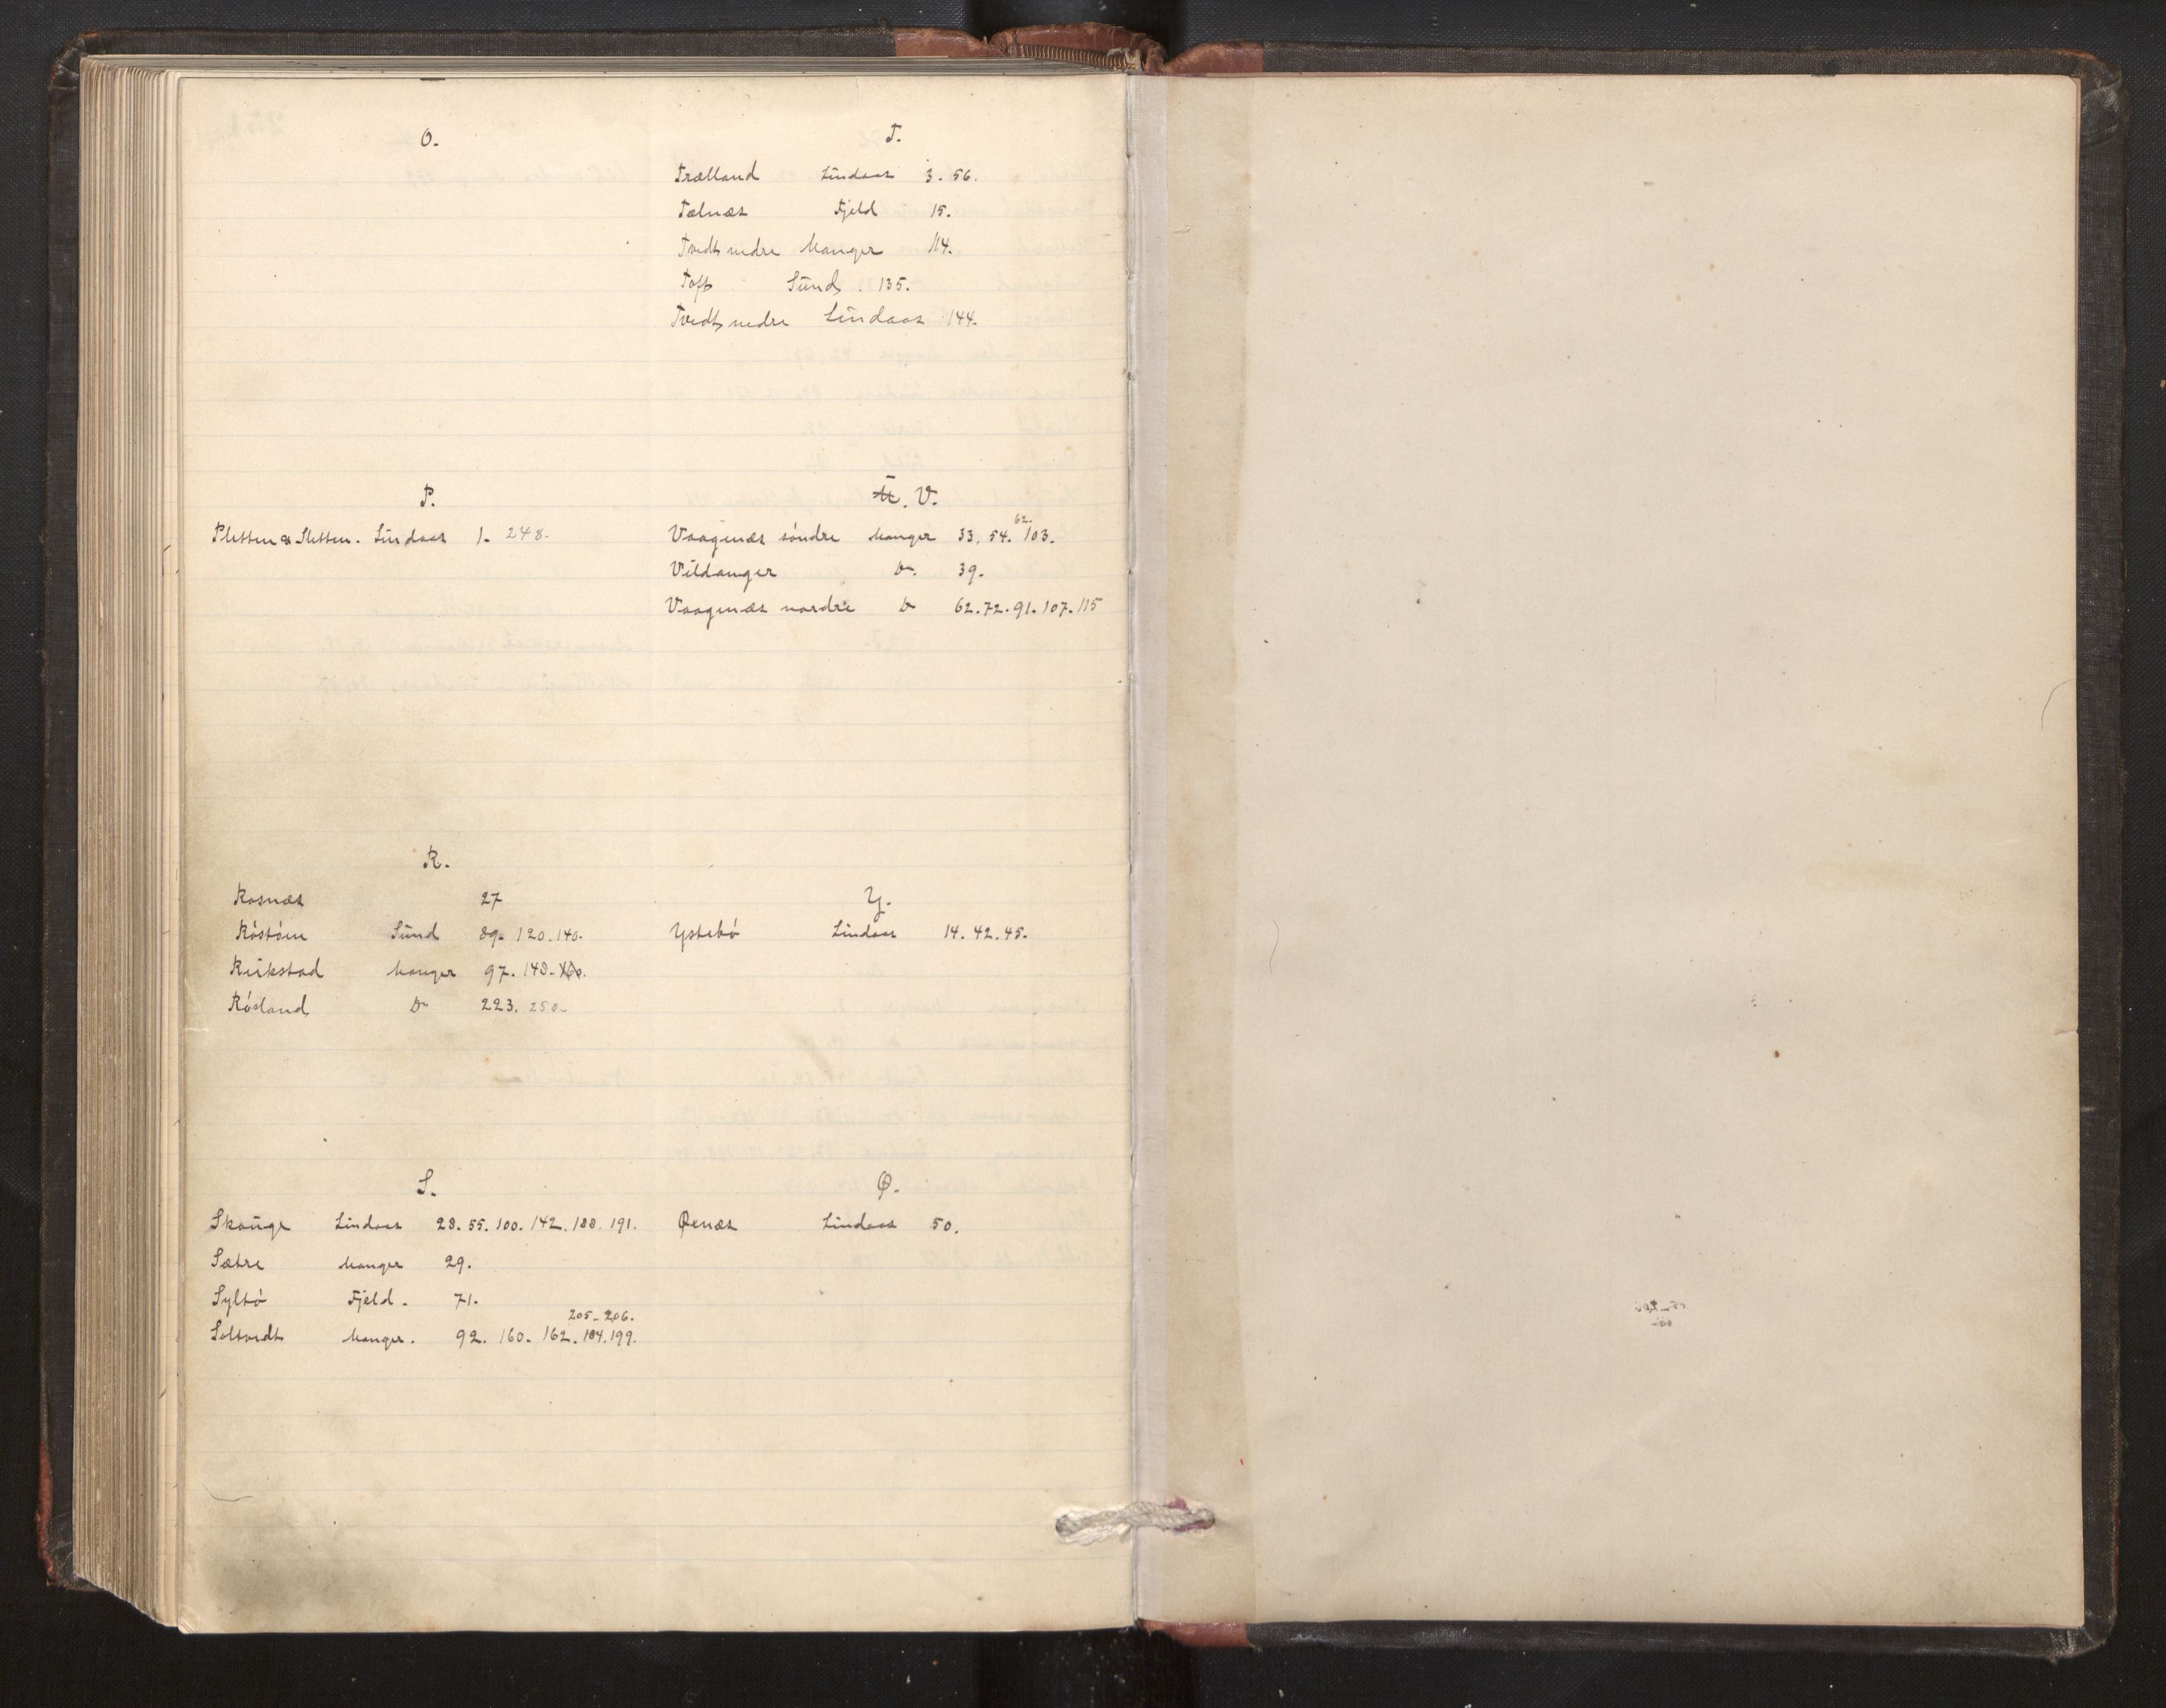 O.
P.
Pletten & Sletten. Lindaas 1. 248.
R.
Rosnæs 27
Röstöen Sund 89. 120. 140.
Rickstad Manger 97. 148.
Rösland Do 223. 250.
S.
Skauge Lindaas 28. 55. 100. 142. 188. 191.
Sætre Manger 29.
Syltö Fjeld. 71.
205. 206.
Soltvedt Manger. 92. 160. 162. 184. 199.
T.
Trælland Lindaas 3. 56.
Tælnæs Fjeld 15.
Tvedt nedre Manger 114.
Toft Sund. 135.
Tvedt nedre Lindaas 144.
U. V.
62.
Vaagenæs söndre Manger 33. 54. 103.
Vildanger Do. 39.
Vaagenæs nordre Do 62. 72. 91. 107. 115
Y.
Ystebö Lindaas 14. 42. 45.
Ø.
Øxnæs Lindaas 50.